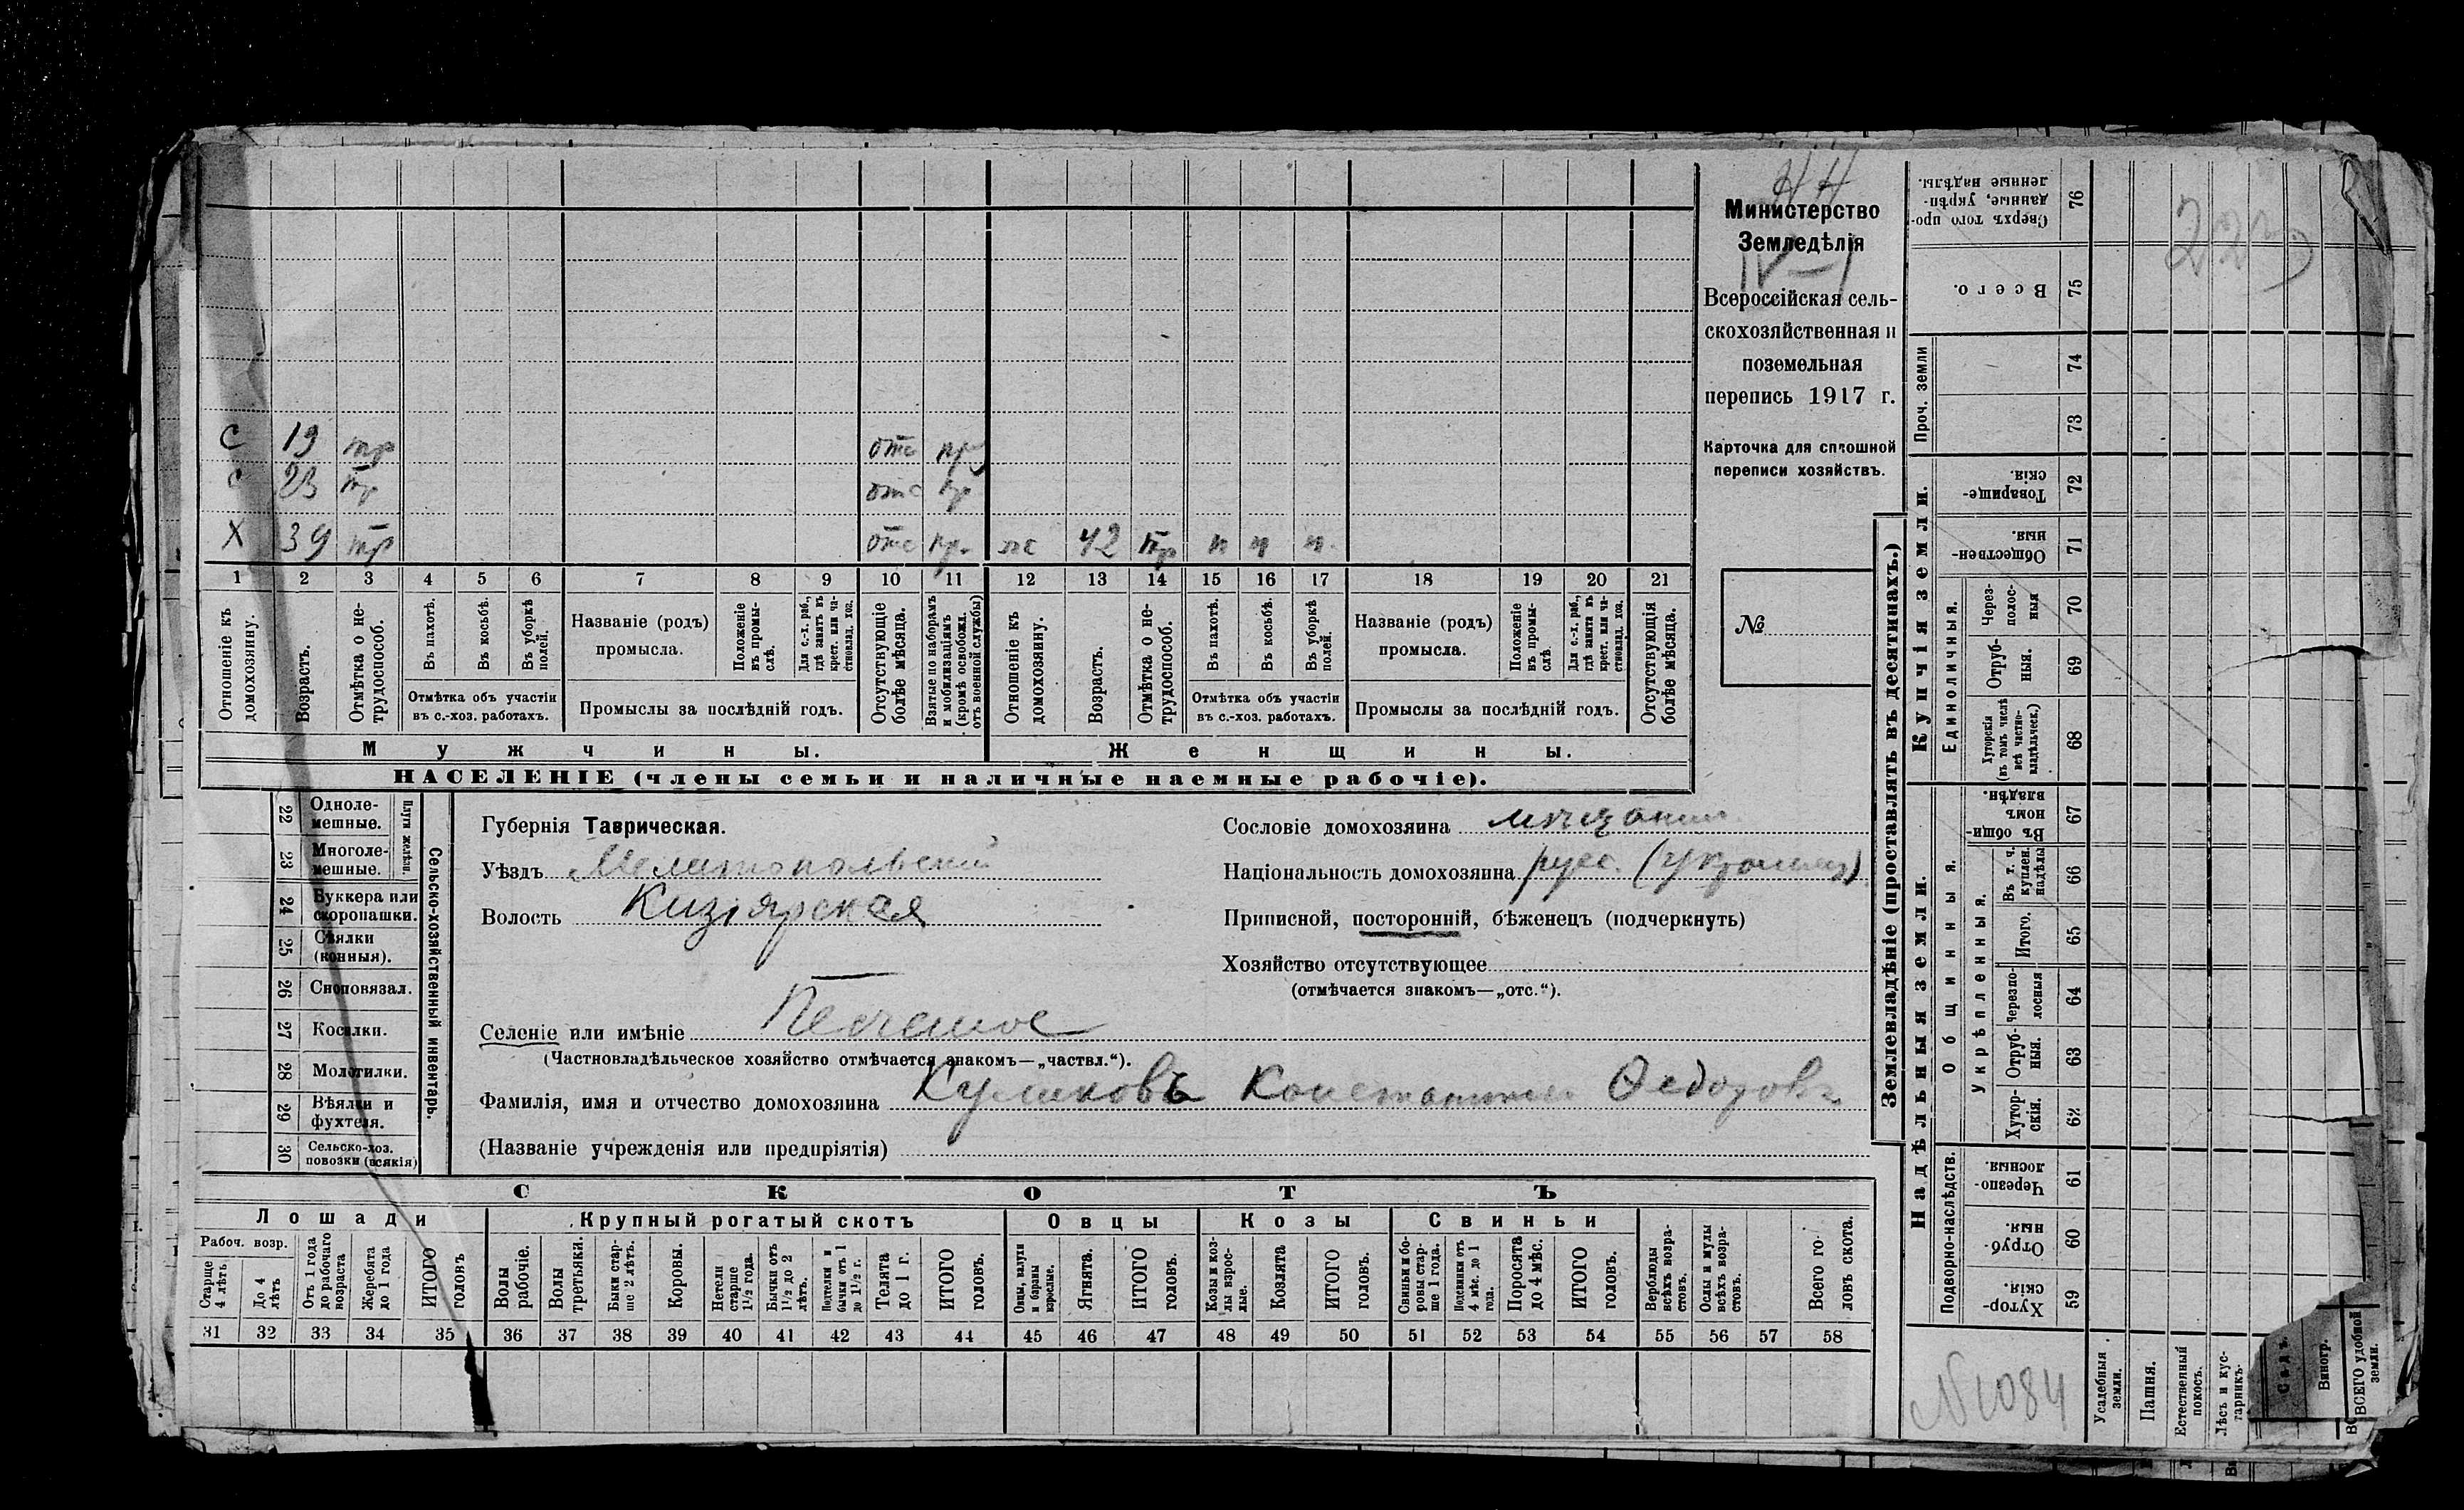 НН
Министерство
Земледѣлія
IV–1
Всероссійская сель-
скохозяйственная и
поземельная
перепись 1917 г.
Карточка для сплошной
переписи хозяйствъ.
№
С 19 тр отс пр
С 23 тр отс пр
Х 39 тр отс пр. ж 42 тр п п п.
1 2 3 4 5 6 7 8 9 10 11 12 13 14 15 16 17 18 19 20 21
Отношеніе къ домохозяину.
Возрастъ.
Отмѣтка о не-трудоспособ.
Въ пахотѣ.
Въ косьбѣ.
Въ уборкѣ полей.
Отмѣтка объ участіи
въ с.-хоз. работахъ.
Названіе (родъ)
промысла.
Положеніе въ промы-слѣ.
Для с.-х. раб., гдѣ занятъ въ крест. или ча-стновлад. хоз.
Промыслы за послѣдній годъ.
Отсутствующіе болѣе мѣсяца.
Взятые по наборамъ и мобилизаціямъ (кромѣ освобожд. отъ военной службы)
Отношеніе къ домохозяину.
Возрастъ.
Отмѣтка о не-трудоспособ.
Въ пахотѣ.
Въ косьбѣ.
Въ уборкѣ полей.
Отмѣтка объ участіи
въ с.-хоз. работахъ.
Названіе (родъ)
промысла.
Положеніе въ промы-слѣ.
Для с.-х. раб., гдѣ занята въ крест. или ча-стновлад. хоз.
Промыслы за послѣдній годъ.
Отсутствующія болѣе мѣсяца.
Мужчины. Женщины.
НАСЕЛЕНІЕ (члены семьи и наличные наемные рабочіе).
22 Одноле-мешные.
23 Многоле-мешные.
Плуги желѣзн.
24 Буккера или скоропашки.
25 Сѣялки (конныя).
26 Сноповязал.
27 Косилки.
28 Молотилки.
29 Вѣялки и фухтеля.
30 Сельско-хоз. повозки (всякія)
Сельско-хозяйственный инвентарь.
Губернія Таврическая.
Уѣздъ Мелитопольскій
Волость Кизіярская
Селеніе или имѣніе Песчаное
(Частновладѣльческое хозяйство отмѣчается знакомъ—„частвл.“).
Фамилія, имя и отчество домохозяина Куликовъ Константинъ Федоров
(Названіе учрежденія или предпріятія)
Сословіе домохозяина мѣщанин
Національность домохозяина русс. (украинец)
Приписной, посторонній, бѣженецъ (подчеркнуть)
Хозяйство отсутствующее
(отмѣчается знакомъ—„отс.“).
СКОТЪ
Лошади Крупный рогатый скотъ Овцы Козы Свиньи
Рабоч. возр.
Старше 4 лѣтъ
До 4 лѣтъ
Отъ 1 года до рабочаго возраста
Жеребята до 1 года
ИТОГО головъ
Волы рабочіе.
Волы третьяки.
Быки стар-ше 2 лѣтъ.
Коровы.
Нетели старше 1½ года.
Бычки отъ 1½ до 2 лѣтъ.
Подтелки и бычки отъ 1 до 1½ г.
Телята до 1 г.
ИТОГО головъ.
Овцы, валухи и бараны взрослые.
Ягнята.
ИТОГО головъ.
Козы и коз-лы взрос-лые.
Козлята
ИТОГО головъ.
Свиньи и бо-ровы стар-ше 1 года.
Подсвинки отъ 4 мѣс. до 1 года.
Поросята до 4 мѣс.
ИТОГО головъ.
Верблюды всѣхъ возра-стовъ.
Ослы и мулы всѣхъ возра-стовъ.
Всего го-ловъ скота.
31 32 33 34 35 36 37 38 39 40 41 42 43 44 45 46 47 48 49 50 51 52 53 54 55 56 57 58
Землевладѣніе (проставлять въ десятинахъ.)
Купчія земли.
Надѣльныя земли.
Проч. земли
Единоличныя.
Общинныя.
Укрѣпленныя.
Подворно-наслѣдств.
Сверхъ того про-данные, укрѣп-ленные надѣлы. 76
Всего. 75
74
73
Товарище-скія. 72
Обществен-ныя. 71
Черезполос-ныя 70
Отруб-ныя. 69
Хуторскія (въ томъ числѣ всѣ частно-владѣльческ.) 68
Въ общи-номъ владѣн. 67
Въ т. ч. куплен. надѣлы 66
Итого. 65
Черезпо-лосныя 64
Отруб-ныя. 63
Хутор-скія. 62
Черезпо-лосныя. 61
Отруб-ныя. 60
Хутор-скія. 59
№ 1084
Усадебныя земли.
Пашня.
Естественный покосъ.
Лѣсъ и кус-тарникъ.
Садъ.
Виногр.
ВСЕГО удобной земли.